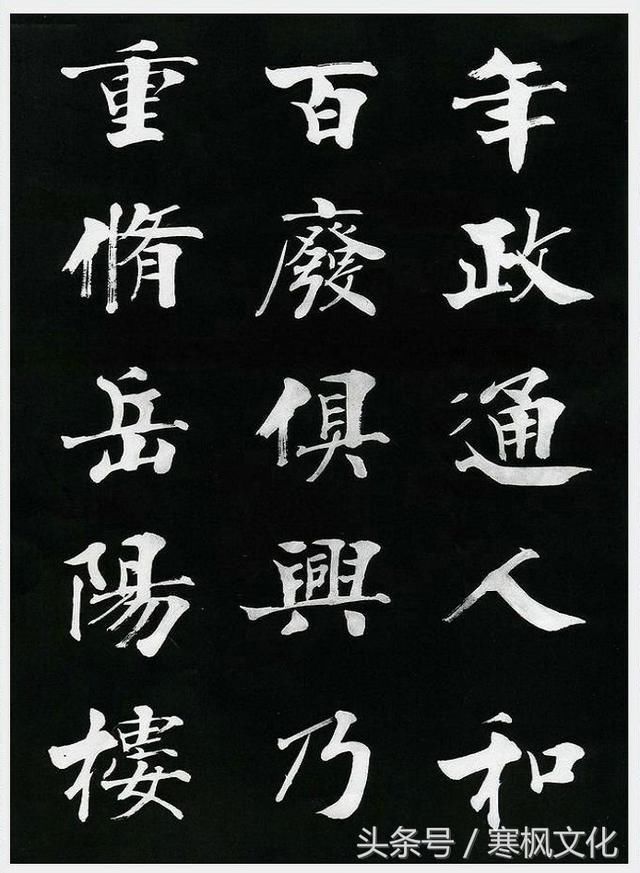 年政通人和
百廢俱興乃
重脩岳陽樓
头条号 / 寒枫文化